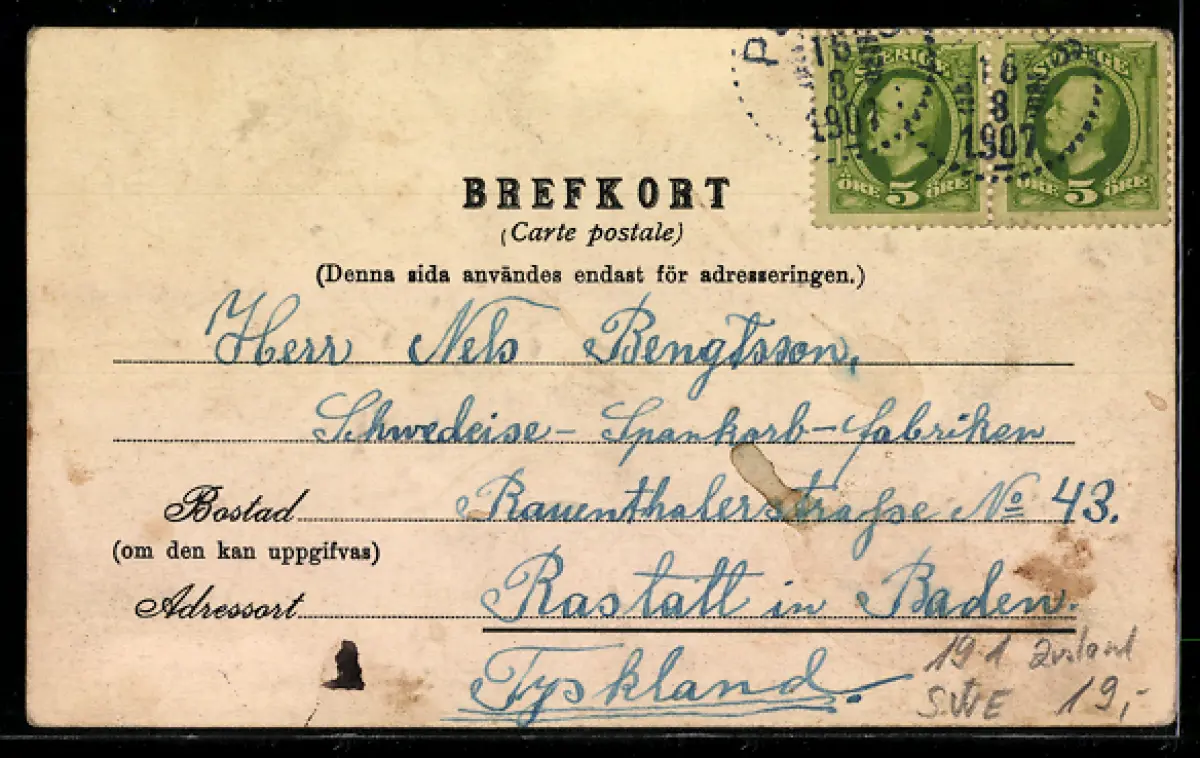 16
8
1907
16
8
1907
SVERIGE
SVERIGE
ÖRE 5 ÖRE
ÖRE 5 ÖRE
BREFKORT
(Carte postale)
(Denna sida användes endast för adresseringen.)
Herr Nels Bengtsson,
Schwedeise - Spankorb - fabriken
Bostad Rauenthalerstraße No 43.
(om den kan uppgifvas)
Adressort Rastatt in Baden.
Tyskland.
19.1
SWE 19,-